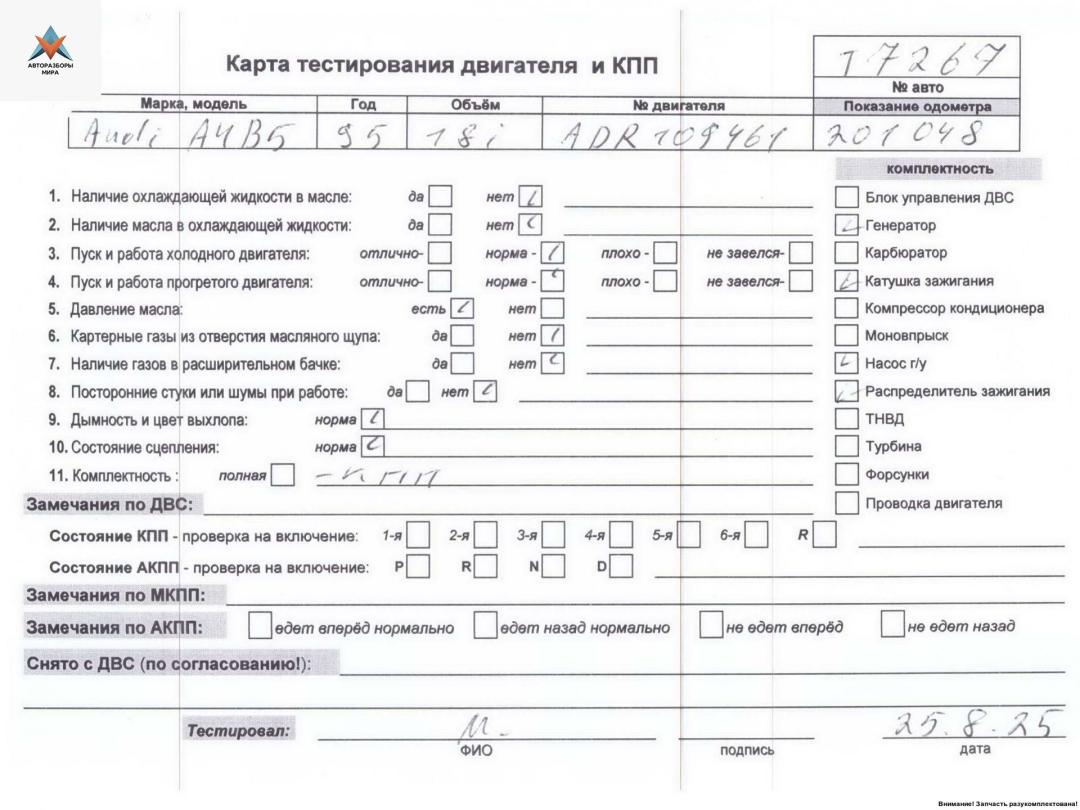 АВТОРАЗБОРЫ
МИРА
Карта тестирования двигателя и КПП
T7267
№ авто
Марка, модель Год Объём № двигателя Показание одометра
Audi A4B5 95 18i ADR109461 201048
комплектность
1. Наличие охлаждающей жидкости в масле: да нет Блок управления ДВС
2. Наличие масла в охлаждающей жидкости: да нет Генератор
3. Пуск и работа холодного двигателя: отлично- норма - плохо - не завелся- Карбюратор
4. Пуск и работа прогретого двигателя: отлично- норма - плохо - не завелся- Катушка зажигания
5. Давление масла: есть нет Компрессор кондиционера
6. Картерные газы из отверстия масляного щупа: да нет Моновпрыск
7. Наличие газов в расширительном бачке: да нет Насос г/у
8. Посторонние стуки или шумы при работе: да нет Распределитель зажигания
9. Дымность и цвет выхлопа: норма ТНВД
10. Состояние сцепления: норма Турбина
11. Комплектность : полная - КПП Форсунки
Замечания по ДВС: Проводка двигателя
Состояние КПП - проверка на включение: 1-я 2-я 3-я 4-я 5-я 6-я R
Состояние АКПП - проверка на включение: P R N D
Замечания по МКПП:
Замечания по АКПП: едет вперёд нормально едет назад нормально не едет вперёд не едет назад
Снято с ДВС (по согласованию!):
Тестировал: И. 25.8.25
ФИО подпись дата
Внимание! Запчасть разукомплектована!